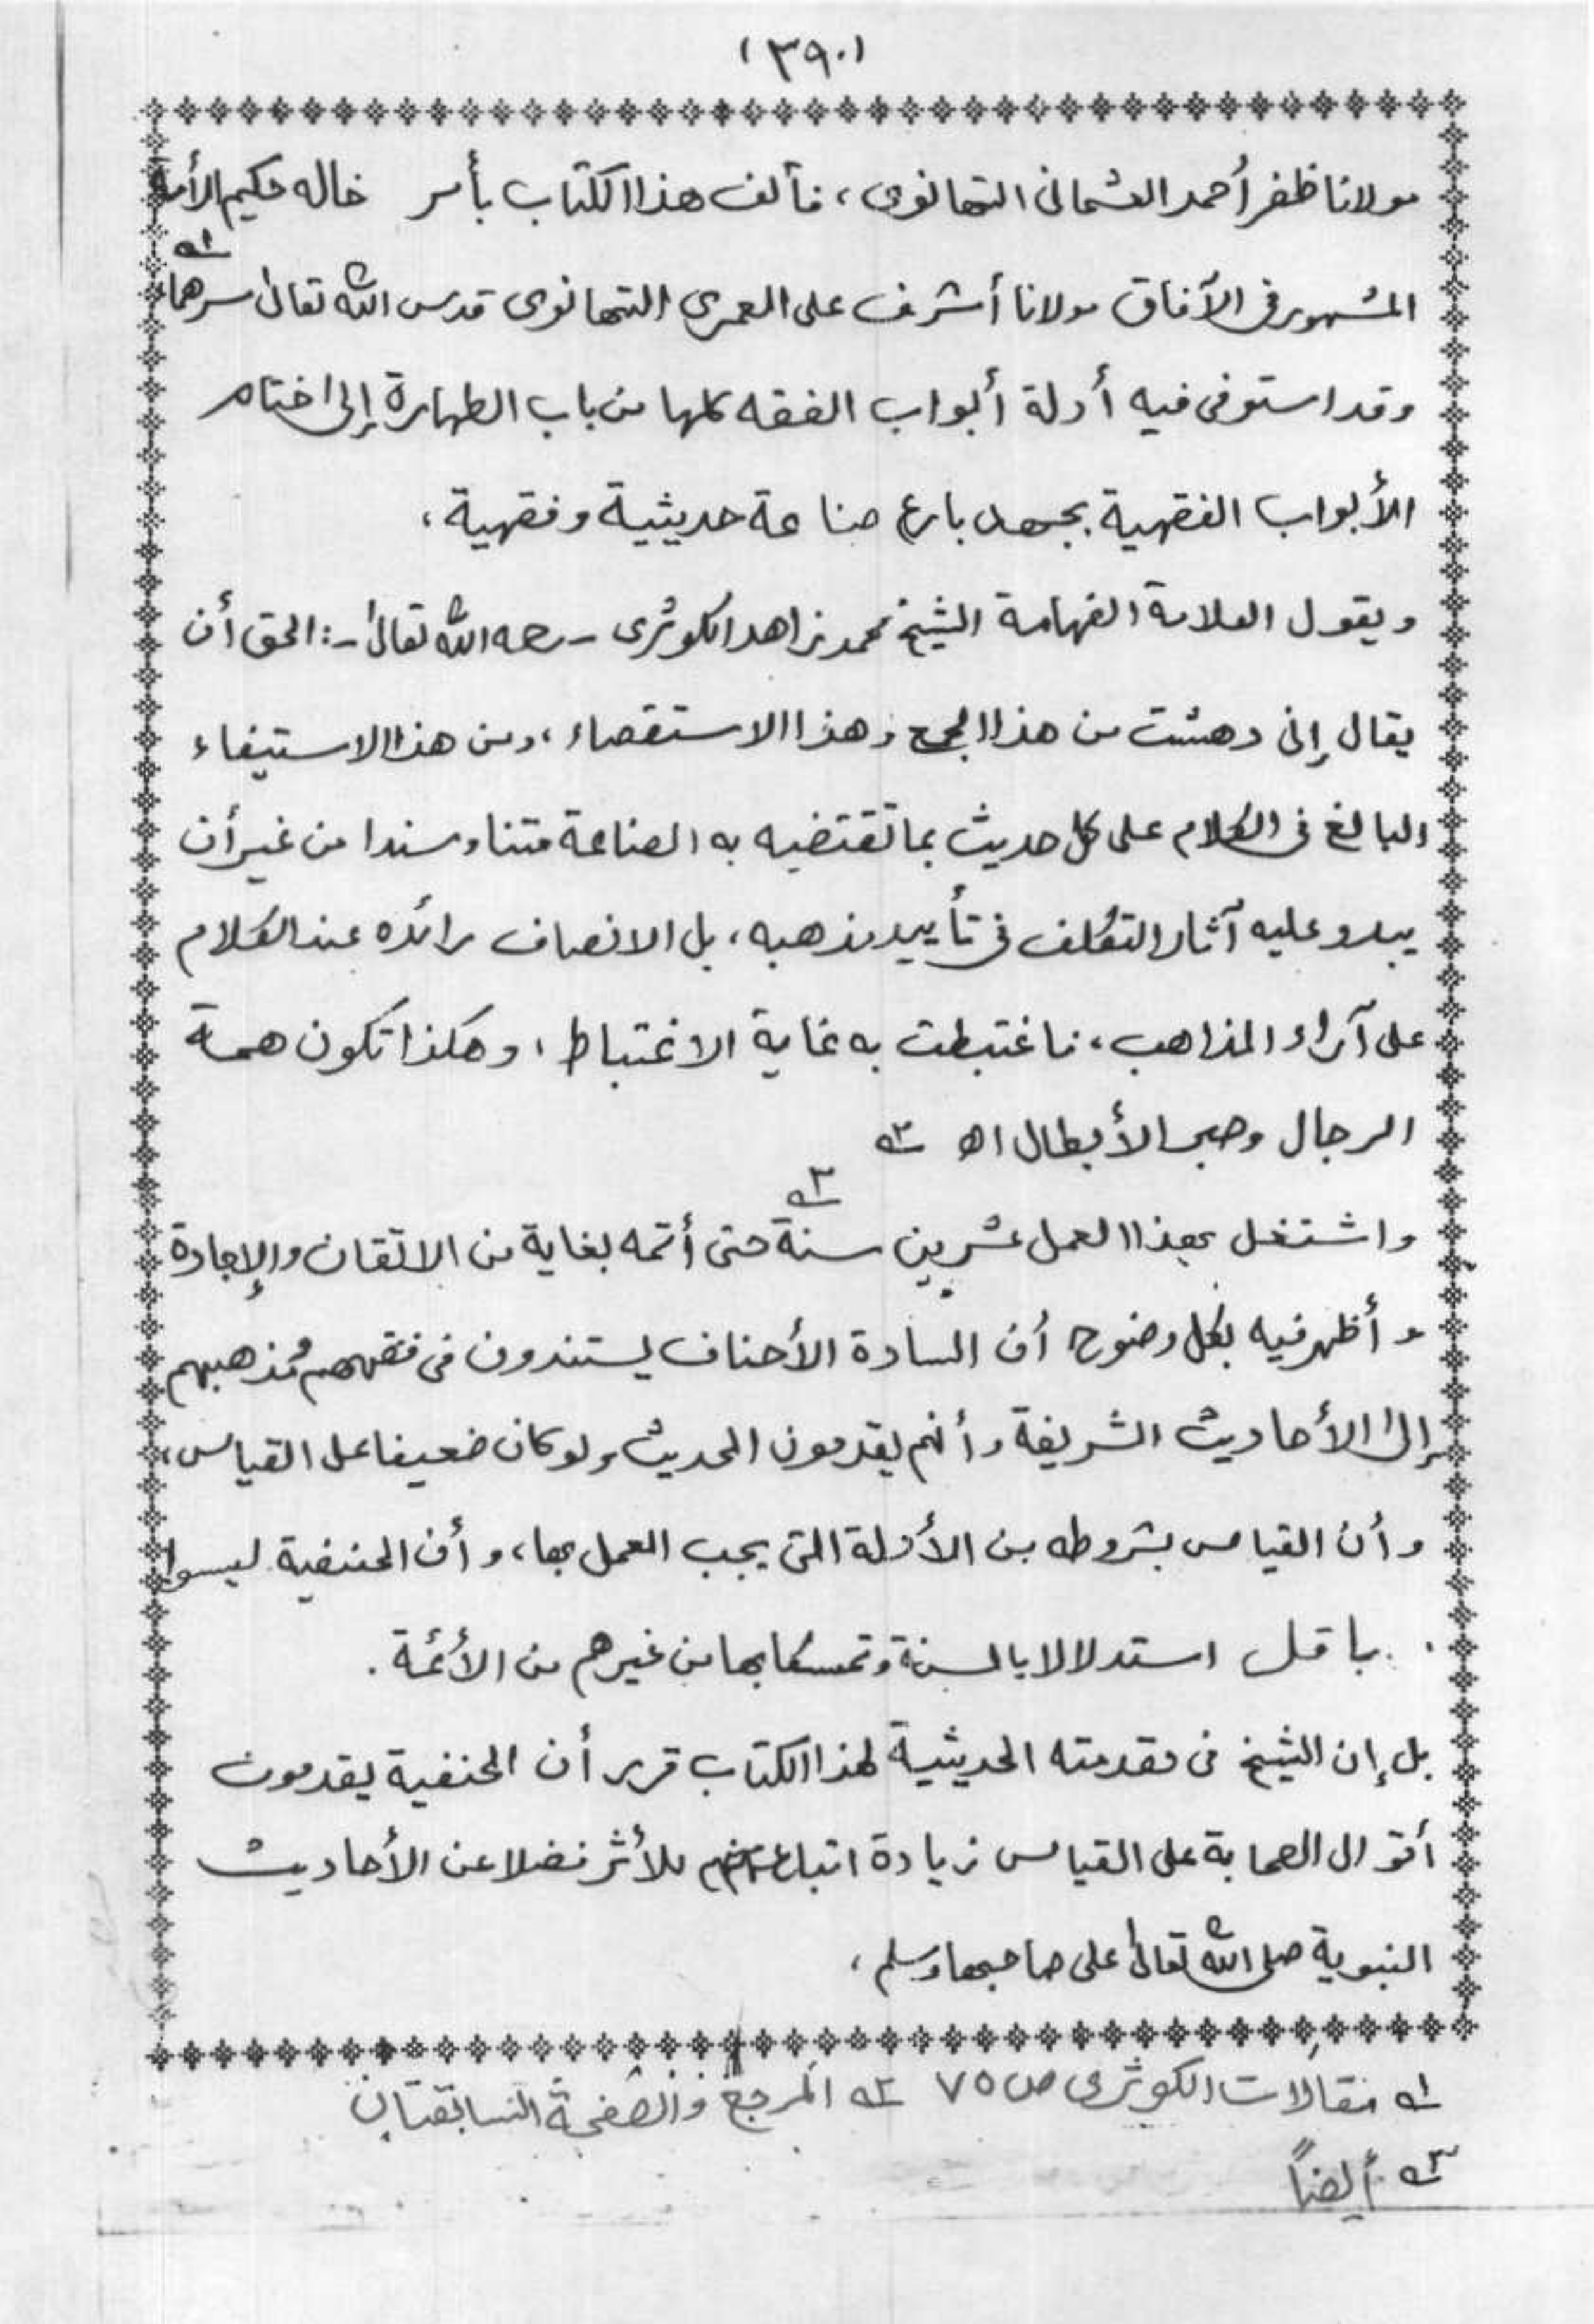 (٣٩٠)
مولانا ظفر أحمد العثمانى التهانوى، فألف هذا الكتاب بأمر خاله حكيم الأمة
المشهور فى الآفاق مولانا أشرف على العمرى التهانوى قدس الله تعالىٰ سرهما، ١ه
وقد استوفى فيه أدلة أبواب الفقه كلها من باب الطهارة إلى اختتام
الأبواب الفقهية بجهد بارع صناعة حديثية وفقهية،
ويقول العلامة الفهامة الشيخ محمد زاهد الكوثرى - رحمه الله تعالىٰ -: الحق أن
يقال إنى دهشت من هذا الجمع وهذا الاستقصاء، ومن هذا الاستيفاء
البالغ فى الكلام على كل حديث بما تقتضيه به الصناعة متنا وسندا من غير أن
يبدو عليه آثار التكلف فى تأييد مذهبه، بل الانصاف رائده عند الكلام
على آراء المذاهب، فاغتبطت به غاية الاغتباط، وهكذا تكون همة
الرجال وصبر الأبطال اه ٢ه
واشتغل بهذا العمل عشرين سنة ٣ه حتى أتمه بغاية من الاتقان والإجادة
وأظهر فيه بكل وضوح أن السادة الأحناف يستندون فى فقههم ومذهبهم
إلىٰ الأحاديث الشريفة وأنهم يقدمون الحديث ولو كان ضعيفا على القياس،
وأن القياس بشروطه من الأدلة التى يجب العمل بها، وأن الحنفية ليسوا
بأقل استدلالا بالسنة وتمسكا بها من غيرهم من الأئمة.
بل إن الشيخ فى مقدمته الحديثية لهذا الكتاب قرر أن الحنفية يقدمون
أقوال الصحابة على القياس زيادة اتباع منهم للأثر فضلا عن الأحاديث
النبوية صلى الله تعالىٰ على صاحبها وسلم،
١ه مقالات الكوثرى ص ٧٥ ٢ه المرجع والصفحة السابقتان
٣ه أيضاً